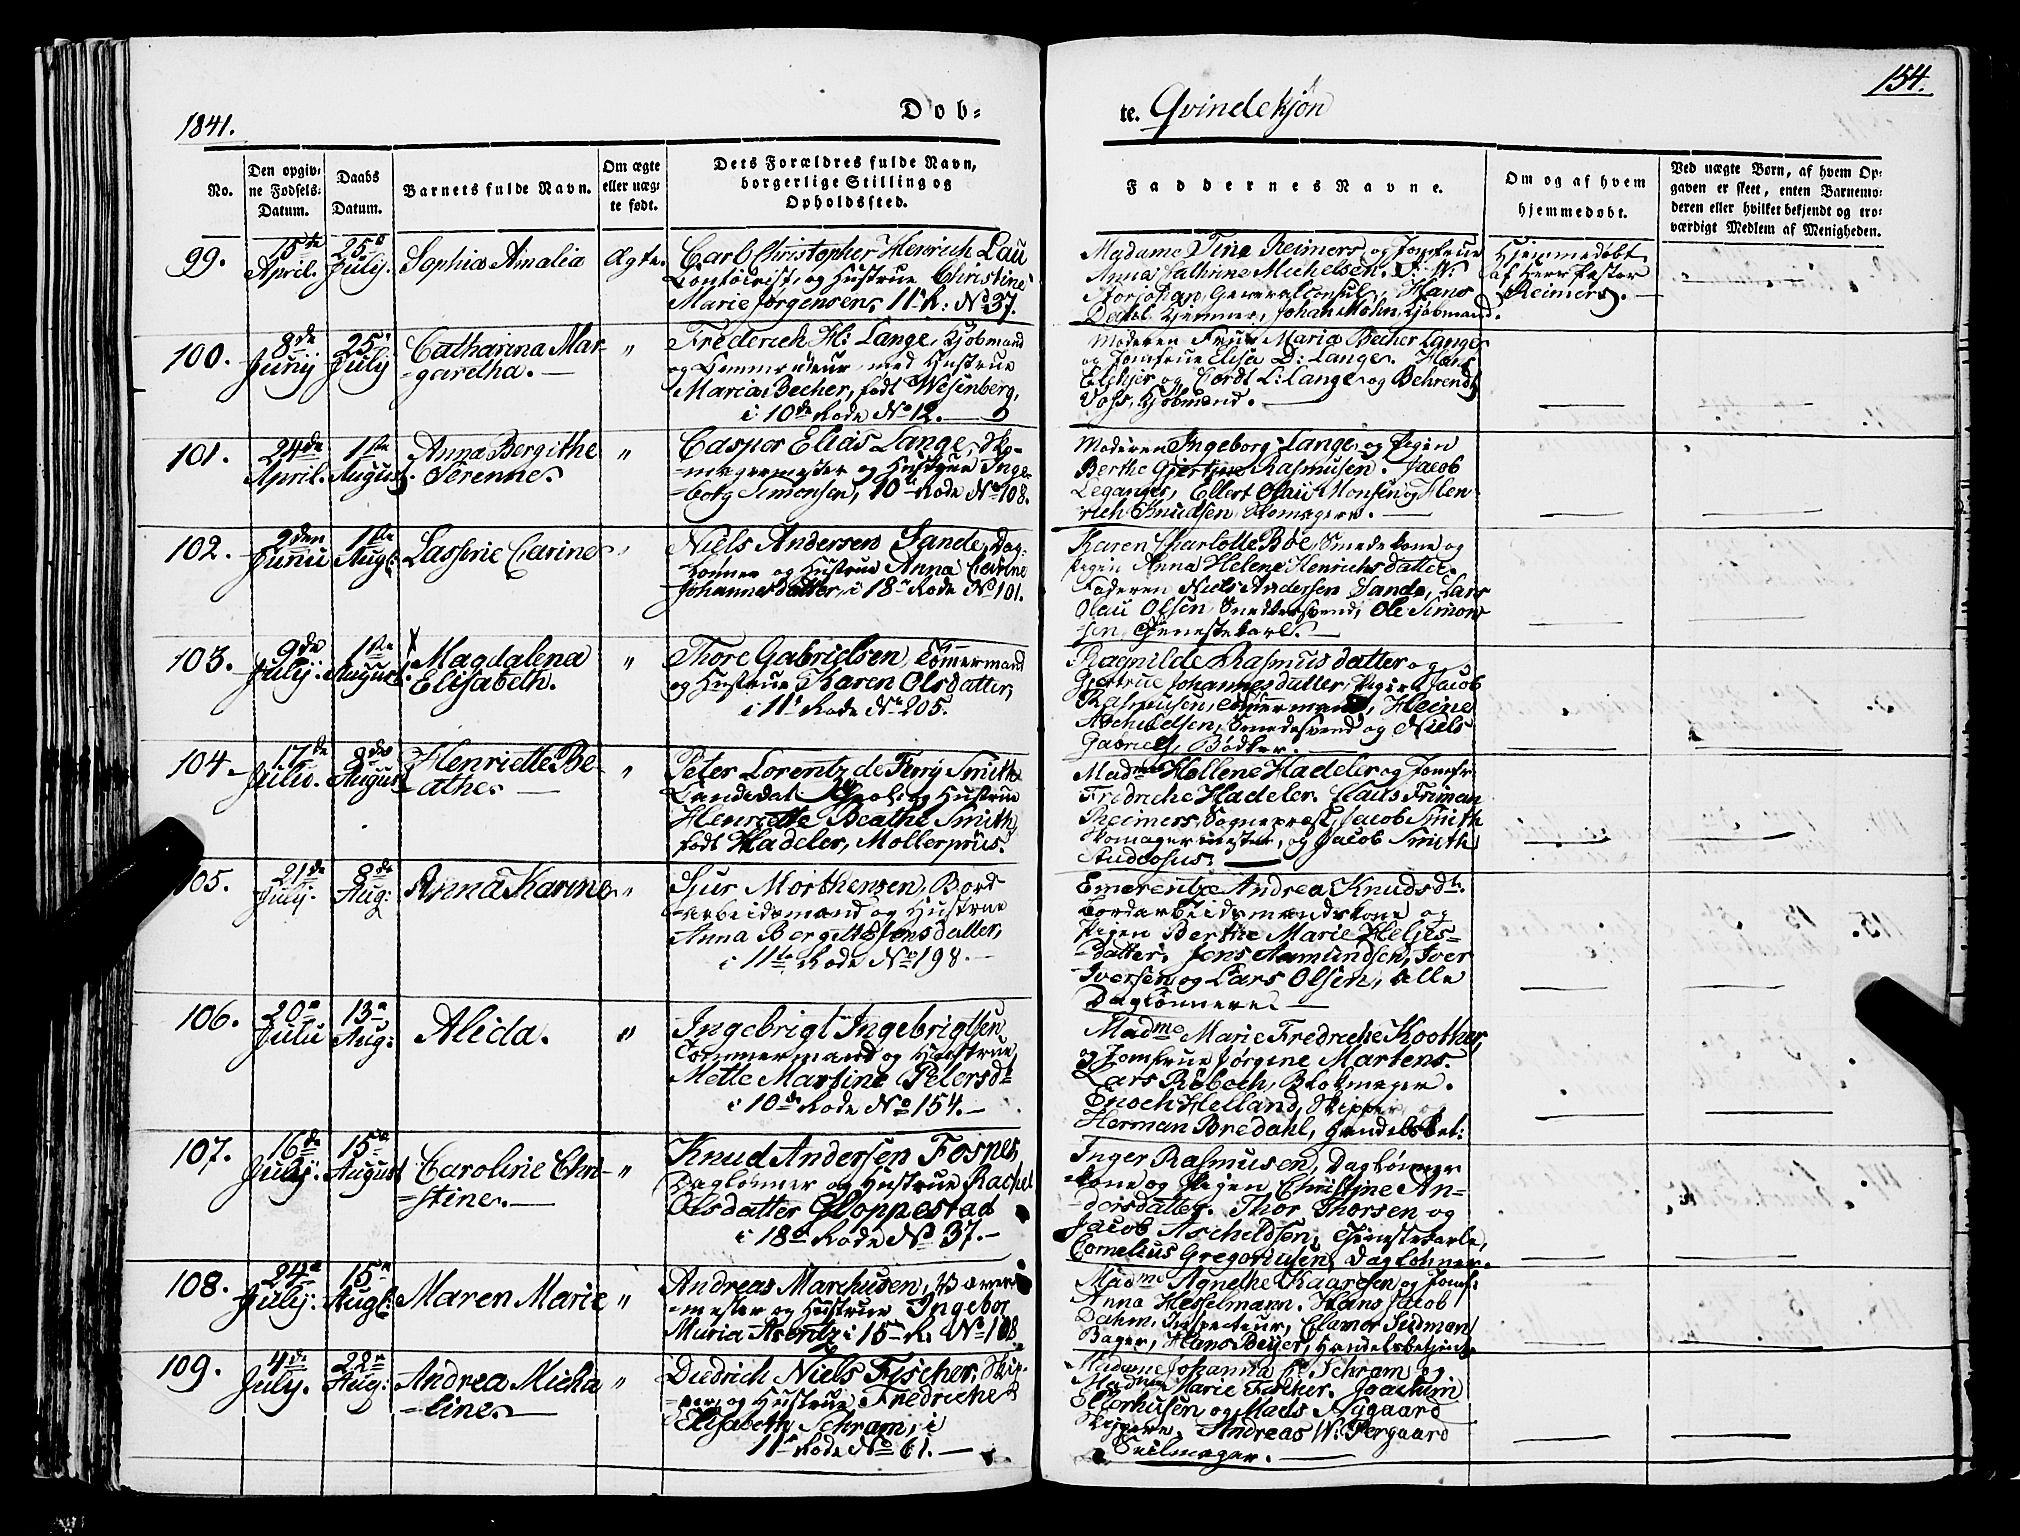 154.
1841.
Dob-
te. Qvindekjøn
No.
Den opgiv-
ne Fødsels-
Datum.
Daabs
Datum.
Barnets fulde Navn.
Om ægte
eller uæg-
te født.
Dets Forældres fulde Navn,
borgerlige Stilling og
Opholdssted.
Faddernes Navne.
Om og af hvem
hjemmedøbt.
Ved uægte Børn, af hvem Op-
gaven er skeet, enten Barnemo-
deren eller hvilket bekjendt og tro-
værdigt Medlem af Menigheden.
99.
15de
April.
25de
July.
Sophia Amalia
Ægte.
Carl Christopher Henrich Lau
Contoirist, og Hustrue Christine
Marie Jørgensen, 11 R: No 37.
Madame Tine Reimers og Jomfrue
Anna Cathrine Michelsen.
General Consul, Hans
Kjemner, Johan Mohn, Kjøbmænd.
Hjemmedøbt
af Herr Pastor
Reimers.
100.
8de
Junij
25de
July
Catharina Mar-
-garetha.
"
Frederich M: Lange, Kjøbmand
og Hustrue
Maria Becher, født Wesenberg,
i 10de Rode No 12.
Moderen Frue Maria Becher Lange
og Jomfrue Elisa D: Lange. Hans
Elchjer og Cordt L: Lange og Behrendt
Voss, Kjøbmænd.
101.
24de
April.
1ste
August.
Anna Bergithe
Serenne.
"
Casper Elias Lange, Sko-
-magermester og Hustrue Inge-
-borg Simonsen, 10de Rode No 108.
Moderen Ingeborg Lange, og Pigen
Berthe Gjertine Rasmusen. Jacob
Leganger, Ellert Olai Monsen og Hen-
rich Knudsen, Skomagere.
102.
9den
Junii
1ste
Augt:
Lassine Carine
"
Niels Andersen Sande, Dag-
-lønner og Hustrue Anna Carine
Johannesdatter, i 18de Rode No 101.
Karen Charlotte Bøe, Smedekone og
Pigen Anna Helene Henrichsdatter.
Faderen Niels Andersen Sande, Lars
Olai Olsen, Snedkersvend, Ole Simon-
sen, Tjenestekarl.
103.
9de
Julij.
1ste
August.
x
Magdalena
Elisabeth.
"
Thore Gabrielsen, Tømmermand
og Hustrue Karen Olsdatter,
i 11te Rode No 205.
Ragnilde Rasmusdatter og
Gjertrue Johannesdatter, Piger. Jacob
Rasmusen, Tømmermand, Heine
Aschildsen, Smedesvend og Niels
Gabriels, Bødker.
104.
17de
Julii.
8de
August
Henriette Be-
-athe.
"
Peter Lorentz de Ferry Smith
Candidat og Hustrue
Henriette Beathe Smith,
født Hadeler, Møllerpriis.
Madme Hellene Hadeler og Jomfr.
Fredriche Hadeler. Claus Friman
Reimers, Sognepræst, Jacob Smith
Skomagermester, og Jacob Smith
Studiosus.
105.
21de
July.
8de
Aug:
Anna Karine
"
Sjur Morthensen, Bord-
-arbeidsmand og Hustrue
Anna Bergitte Jensdatter,
i 11te Rode No 198.
Emerentze Andrea Knudsdtr.
Bordarbeidsmandskone og
Pigen Berthe Marie Heljes-
-datter. Jens Aamundsen, Iver
Iversen og Lars Olsen, alle
Daglønnere.
106.
20de
Julii
13de
Aug:
Alida.
"
Ingebrigt Ingebrigtsen
Tømmermand og Hustrue
Mette Martine Petersdtr
i 10de Rode No 154.
Madme Marie Fredriche Koother,
og Jomfrue Jørgine Martens.
Lars Røbech, Blokmager.
Enoch Helland, Skipper og
Herman Bredahl, Handelsbet:
107.
16de
Julij.
15de
August
Caroline Chri-
-stine.
"
Knud Andersen Fosnes,
Daglønner og Hustrue Rachel
Olsdatter Gloppestad
i 18de Rode No 37.
Inger Rasmusen, Daglønner-
kone og Pigen Christine An-
-dersdatter. Thor Thorsen og
Jacob Ascheldsen, Tjenestekarle,
Cornelius Gregoriusen, Daglønner.
108.
24de
Julij.
15de
Augt:
Maren Marie
"
Andreas Marchusen,
-mester og Hustrue Ingebor
Maria Arentz i 15de R. No 108.
Madme Agnethe Kaaresen og Jomf:
Anna Hesselmann. Hans Jacob
Dahm, Inspecteur, Elamor Sudman
Bager, Hans Beyer, Handelsbetjent.
109.
4de
July.
22de
Aug:
Andrea Micha-
-line.
"
Diedrich Niels Fischer, Skip-
-per, og Hustrue Fredriche
Elisabeth Schram, i
11te Rode No 61.
Madame Johanna C. Schram og
Madme Marie Fischer. Joachim
Ellerhusen og Mads Aagaard
Skippere. Andreas W: Pergaard
Seilmager.